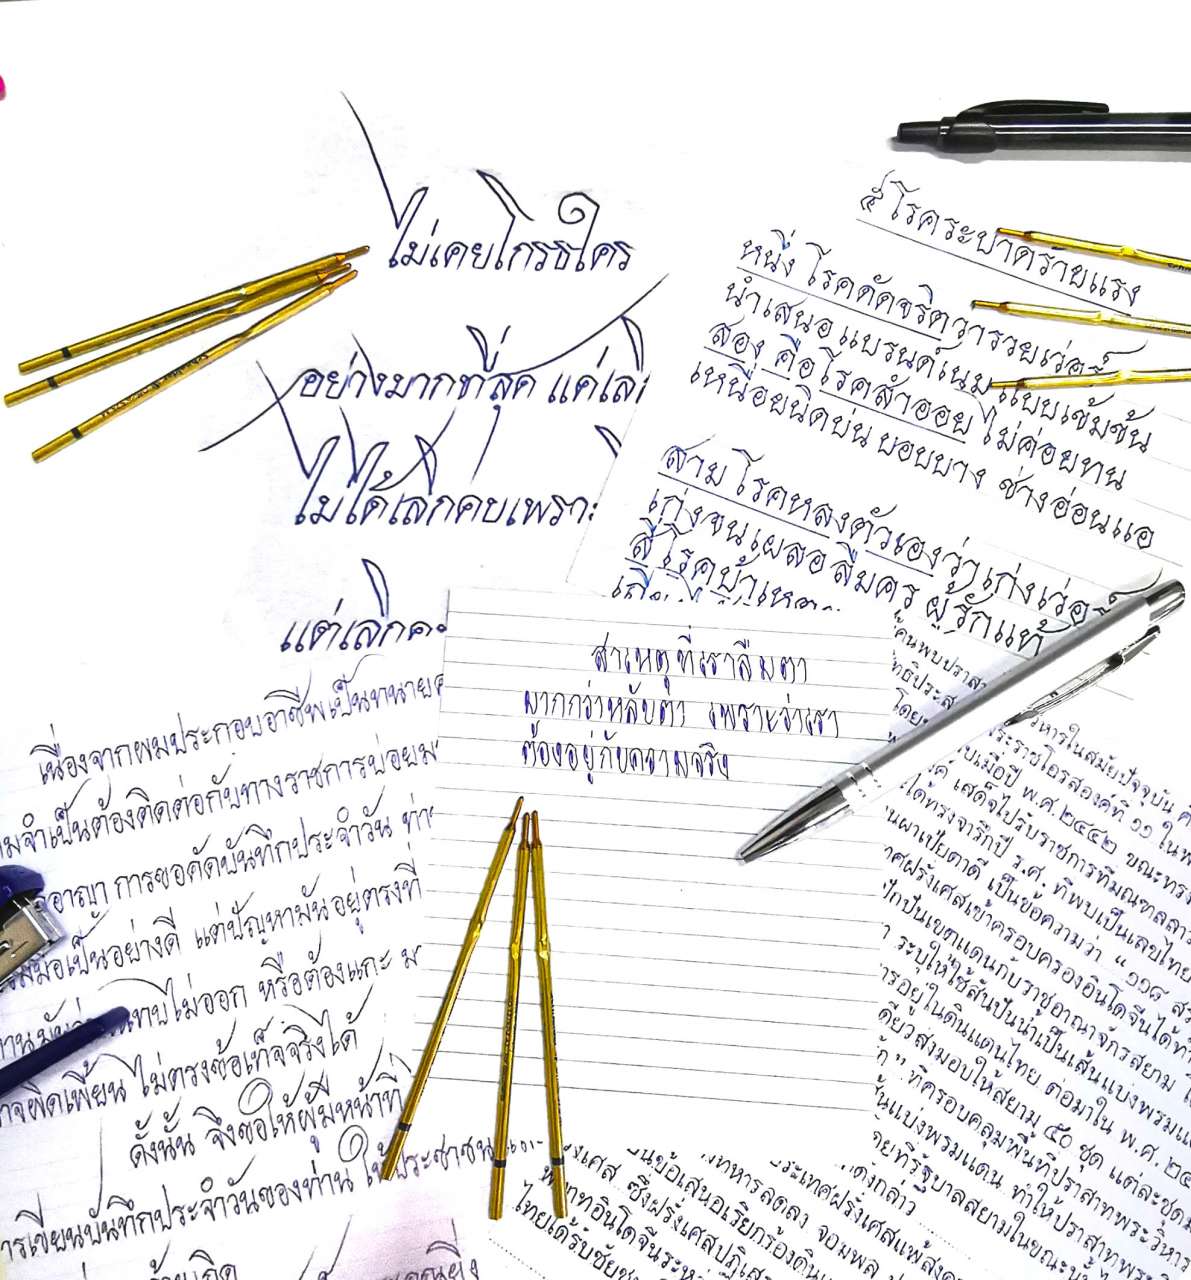 ไม่เคยโกรธใคร
อย่างมากที่สุด แค่เลิ
ไม่ได้เลิกคบเพราะ
แต่เลิกค
๕ โรคระบาดร้ายแรง
หนึ่ง โรคดัดจริตวารวยเว่อร์
นำเสนอแบรนด์เนมแบบเข้มข้น
สอง คือโรคสำออย ไม่ค่อยทน
เหนื่อยนิดบ่น บอบบาง ช่างอ่อนแอ
สาม โรคหลงตัวเองว่าเก่งเว่อร์
เก่งจนเผลอลืมคร ผู้รักแท้
สี่ โรคบ้า
สาเหตุที่เราลืมตา
มากกว่าหลับตา เพราะว่าเรา
ต้องอยู่กับความจริง
เนื่องจากผมประกอบอาชีพเป็นทนายค
มจำเป็นต้องติดต่อกับทางราชการบ่อยม
อาญา การขอคัดบันทึกประจำวัน ท่า
มมือเป็นอย่างดี แต่ปัญหามันอยู่ตรงที่
ไม่ออก หรือต้องแกะ ม
าจผิดเพี้ยน ไม่ตรงข้อเท็จจริงได้
ดังนั้น จึงขอให้ผู้มีหน้าที่
ารเขียนบันทึกประจำวันของท่าน ให้ประชาชน
ค้นพบปราสา
วิหารในสมัยปัจจุบัน คื
ระราชโอรสองค์ที่ ๑๑ ในพ
เมื่อปี พ.ศ.๒๔๔๒ ขณะทรง
เสด็จไปรับราชการที่มณฑลลาว
ได้ทรงจารึกปี ร.ศ. ที่พบเป็นเลขไทย
นผาเป้ยตาดี เป็นข้อความว่า "๑๑๘ สร
ฝรั่งเศสเข้าครอบครองอินโดจีนได้ทำ
ปักปันเขตแดนกับราชอาณาจักรสยาม
ระบุให้ใช้สันปันน้ำเป็นเส้นแบ่งพรมแ
ารอยู่ในดินแดนไทย ต่อมาใน พ.ศ. ๒๔๕
ดียวส่งมอบให้สยาม ๕๐ ชุด แต่ละชุดม
ที่ครอบคลุมพื้นที่ปราสาทพระวิหาร
นแบ่งพรมแดน ทำให้ปราสาทพระวิ
ยที่รัฐบาลสยามในขณะนั้
ดังกล่าว
ประเทศฝรั่งเศสแพ้สงค
ทหารลดลง จอมพล
นข้อเสนอเรียกร้องดินแ
งเศส ซึ่งฝรั่งเศสปฏิเส
พิพาทอินโดจีนระห
ไทยได้รับชัยช